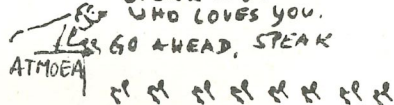 WHO LOVES YOU.
GO AHEAD, SPEAK
ATMOEA